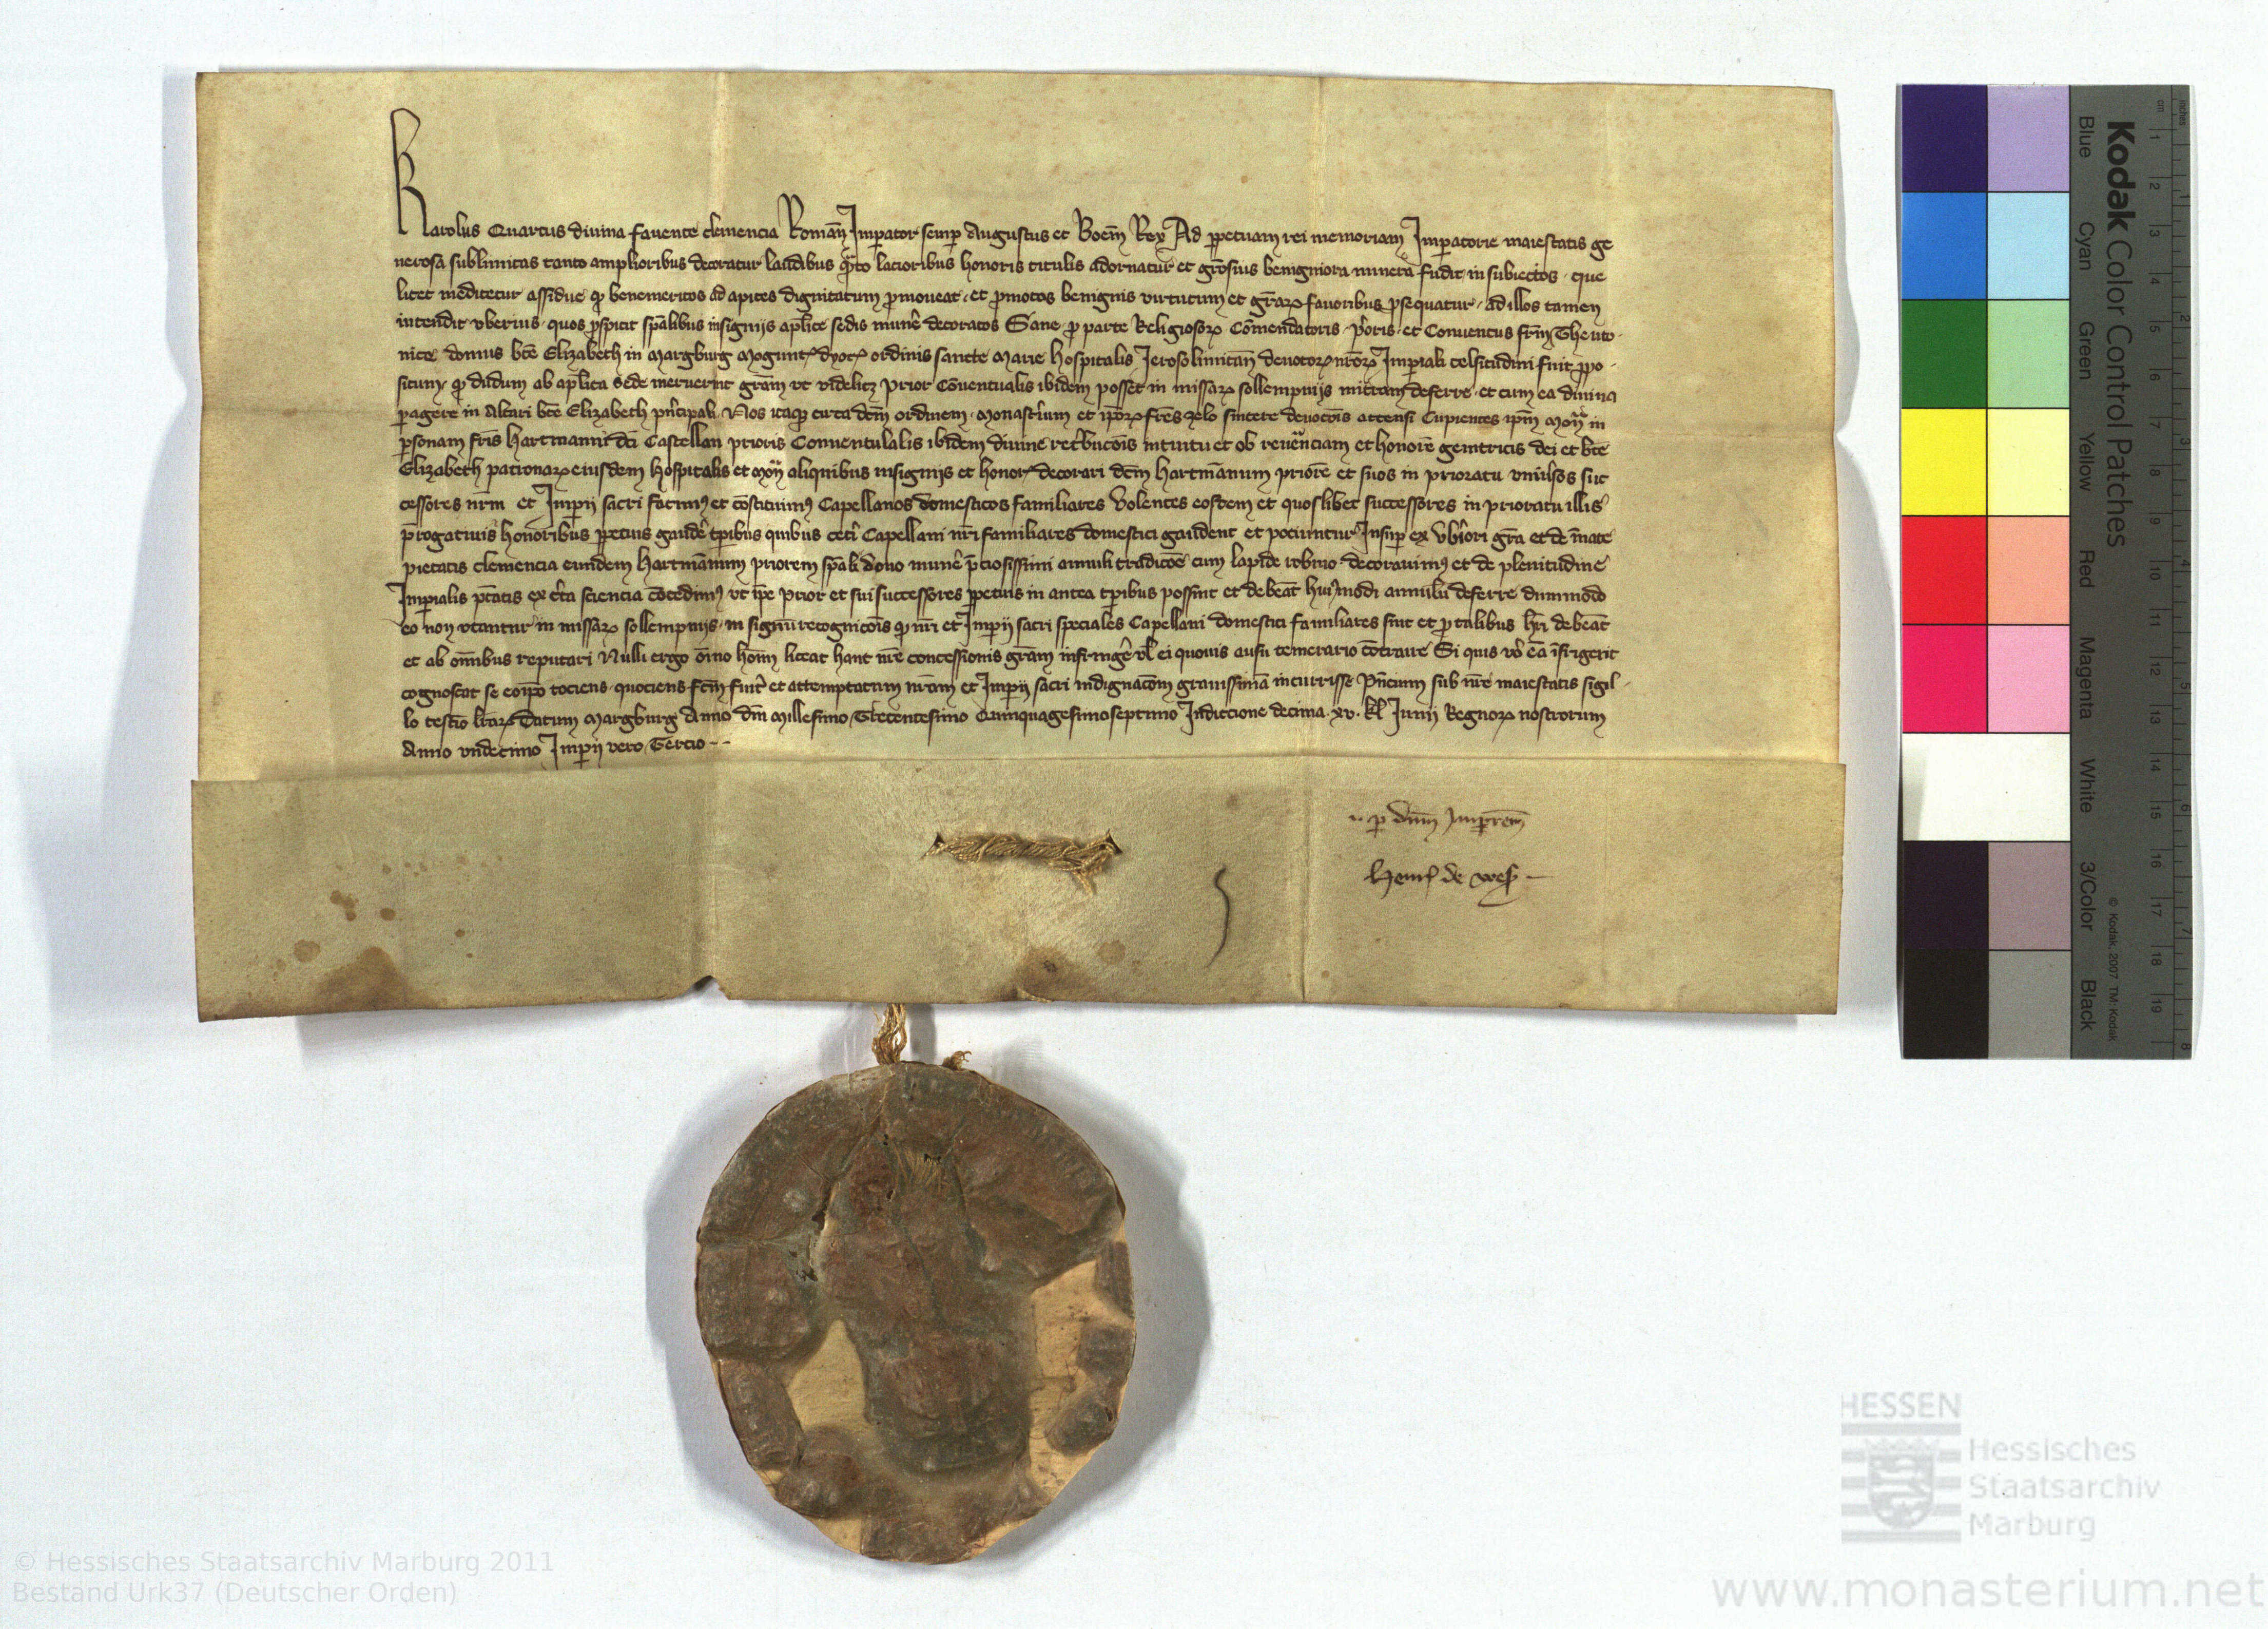 Karolus Quartus diuina fauente clemencia Romań Imperator semp Augustus et Boem̄ Rex Ad ꝑpetuam rei memoriam Imꝑatorie maiestatis ge
nerosa sublimitas tanto amplioribus decoratur laudibus qto lacioribus honoris titulis adornatur et grosius benigniora munera fudit in subiectos · que
licet meditetur assidue ꝙ benemeritos ad apices dignitatum ꝓmoueat · et ꝓmotos benignis virtutum et grarꝝ fauoribus ꝓsequatur · ad illos tamen
intendit vberius · quos ꝓspicit spālibus insignijs apl̄ice sedis mun̄e decoratos Sane ꝓ parte Religiosorꝝ Cōmendatoris · p̄oris · et Conuentus fr̄m Theuto ·
nice domus bt̄e Elizabeth in Margburg Mogunt dyoc ordinis sancte Marie Hospitalis Jerosolimitan̄ deuotorꝝ nr̄orꝝ Imꝑiali celsitudini fuit ꝓpo ·
situm · ꝙ dudum ab apl̄ica sede meruerint gr̄am vt videlicꝫ Prior Cōuentualis ibidem posset in missarꝝ sollempnijs mitram deferre · et cum ea diuina
ꝑagere in Altari bt̄e Elizabeth pn̄cipali Nos itaꝙ circa dc̄m ordinem · Monast̄ium et ip̄orꝝ fr̄es zelo sincere deuoc̄ois accensi Cupientes ip̄m Mon̄ in
ꝑsonam fr̄is Hartmanni dc̄i Castellan prioris Conuentualis ibidem diuine ret̄buc̄ois intuitu et ob reu̾enciam et honorē genitricis dei et bt̄e
Elizabeth patronarꝝ eiusdem Hospitalis et Mon̄ aliquibus insignijs et honor decorari dc̄m Hartmānum priorē et suos in prioratu vniu̾sos suc
cessores nr̄m et Imꝑij sacri facimꝰ et cōstituimꝰ Capellanos domesticos familiares Volentes eosdem et quoslibet successores in prioratu illis
p̄rogatiuis honoribus ꝑpetuis gaud̄e tꝑibus quibus cet̄i Capellani nr̄i familiares domestici gaudent et pociuntur Insuꝑ ex vb̄iori gr̄a et de īnate
pietatis clemencia eundem Hartmānum priorem sp̄ali dono mun̄e p̄ciosissimi annuli tradicōe cum lapide robino decorauimꝰ et de plenitudine
Imꝑialis pt̄atis ex c̄ta sciencia cōcedimꝰ vt ip̄e Prior et sui successores ꝑpetuis in antea tꝑibus possint et debeāt huiꝰmodi annulū deferre dummodo
eo non vtantur in missarꝝ sollempnijs · in signū recognic̄ois ꝙ nr̄i et Imꝑij sacri speciales Capellani domestici familiares sint et ꝓ talibus hr̄i debeāt
et ab om̄ibus reputari Nulli ergo om̄ino hom̄ liceat hanc nr̄e concessionis gr̄am infringe vl̄ ei quouis ausu temerario cōtraire Si quis vo eā īfrigerit
cognoscat se eoip̄o tociens quociens fc̄m fuit et attemptatum nr̄am et Imꝑij sacri indignac̄om grauissimā incurrisse Pn̄cium sub nr̄e maiestatis sigil ·
lo testio lr̄arꝝ Datum Margburg Anno dn̄i Millesimo Trecentesimo Quinquagesimoseptimo Indiccione decima · xv · kl̄ Junij Regnorꝝ nostrorum
Anno vndecimo Imꝑij vero Tercio
ꝑ dn̄m Imꝑrem̄
Henr de wes
Kodak Color Control Patches
Blue Cyan Green Yellow Red Magenta White 3/Color Black
© Kodak 2007 TM: Kodak
inches 1 2 3 4 5 6 7 8
cm 1 2 3 4 5 6 7 8 9 10 11 12 13 14 15 16 17 18 19
HESSEN
Hessisches
Staatsarchiv
Marburg
© Hessisches Staatsarchiv Marburg 2011
Bestand Urk37 (Deutscher Orden)
www.monasterium.net